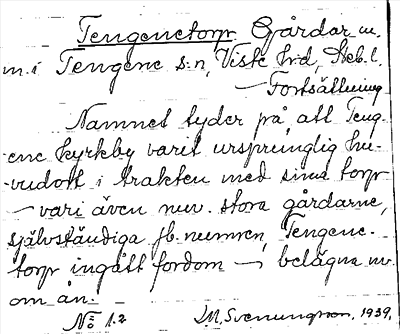 Tengenetorp Gårdar m.
m. i Tengene s:n, Viste hrd, Skb. l.
— Fortsättning
Namnet tyder på, att Teng-
ene kyrkby varit ursprunglig hu-
vudort i trakten med sina torp
— vari även nuv. stora gårdarne,
självständiga jb. numren, Tengene-
torp ingått fordom — belägna nv.
om ån.
No 1.2 I. M. Svenungson, 1939.